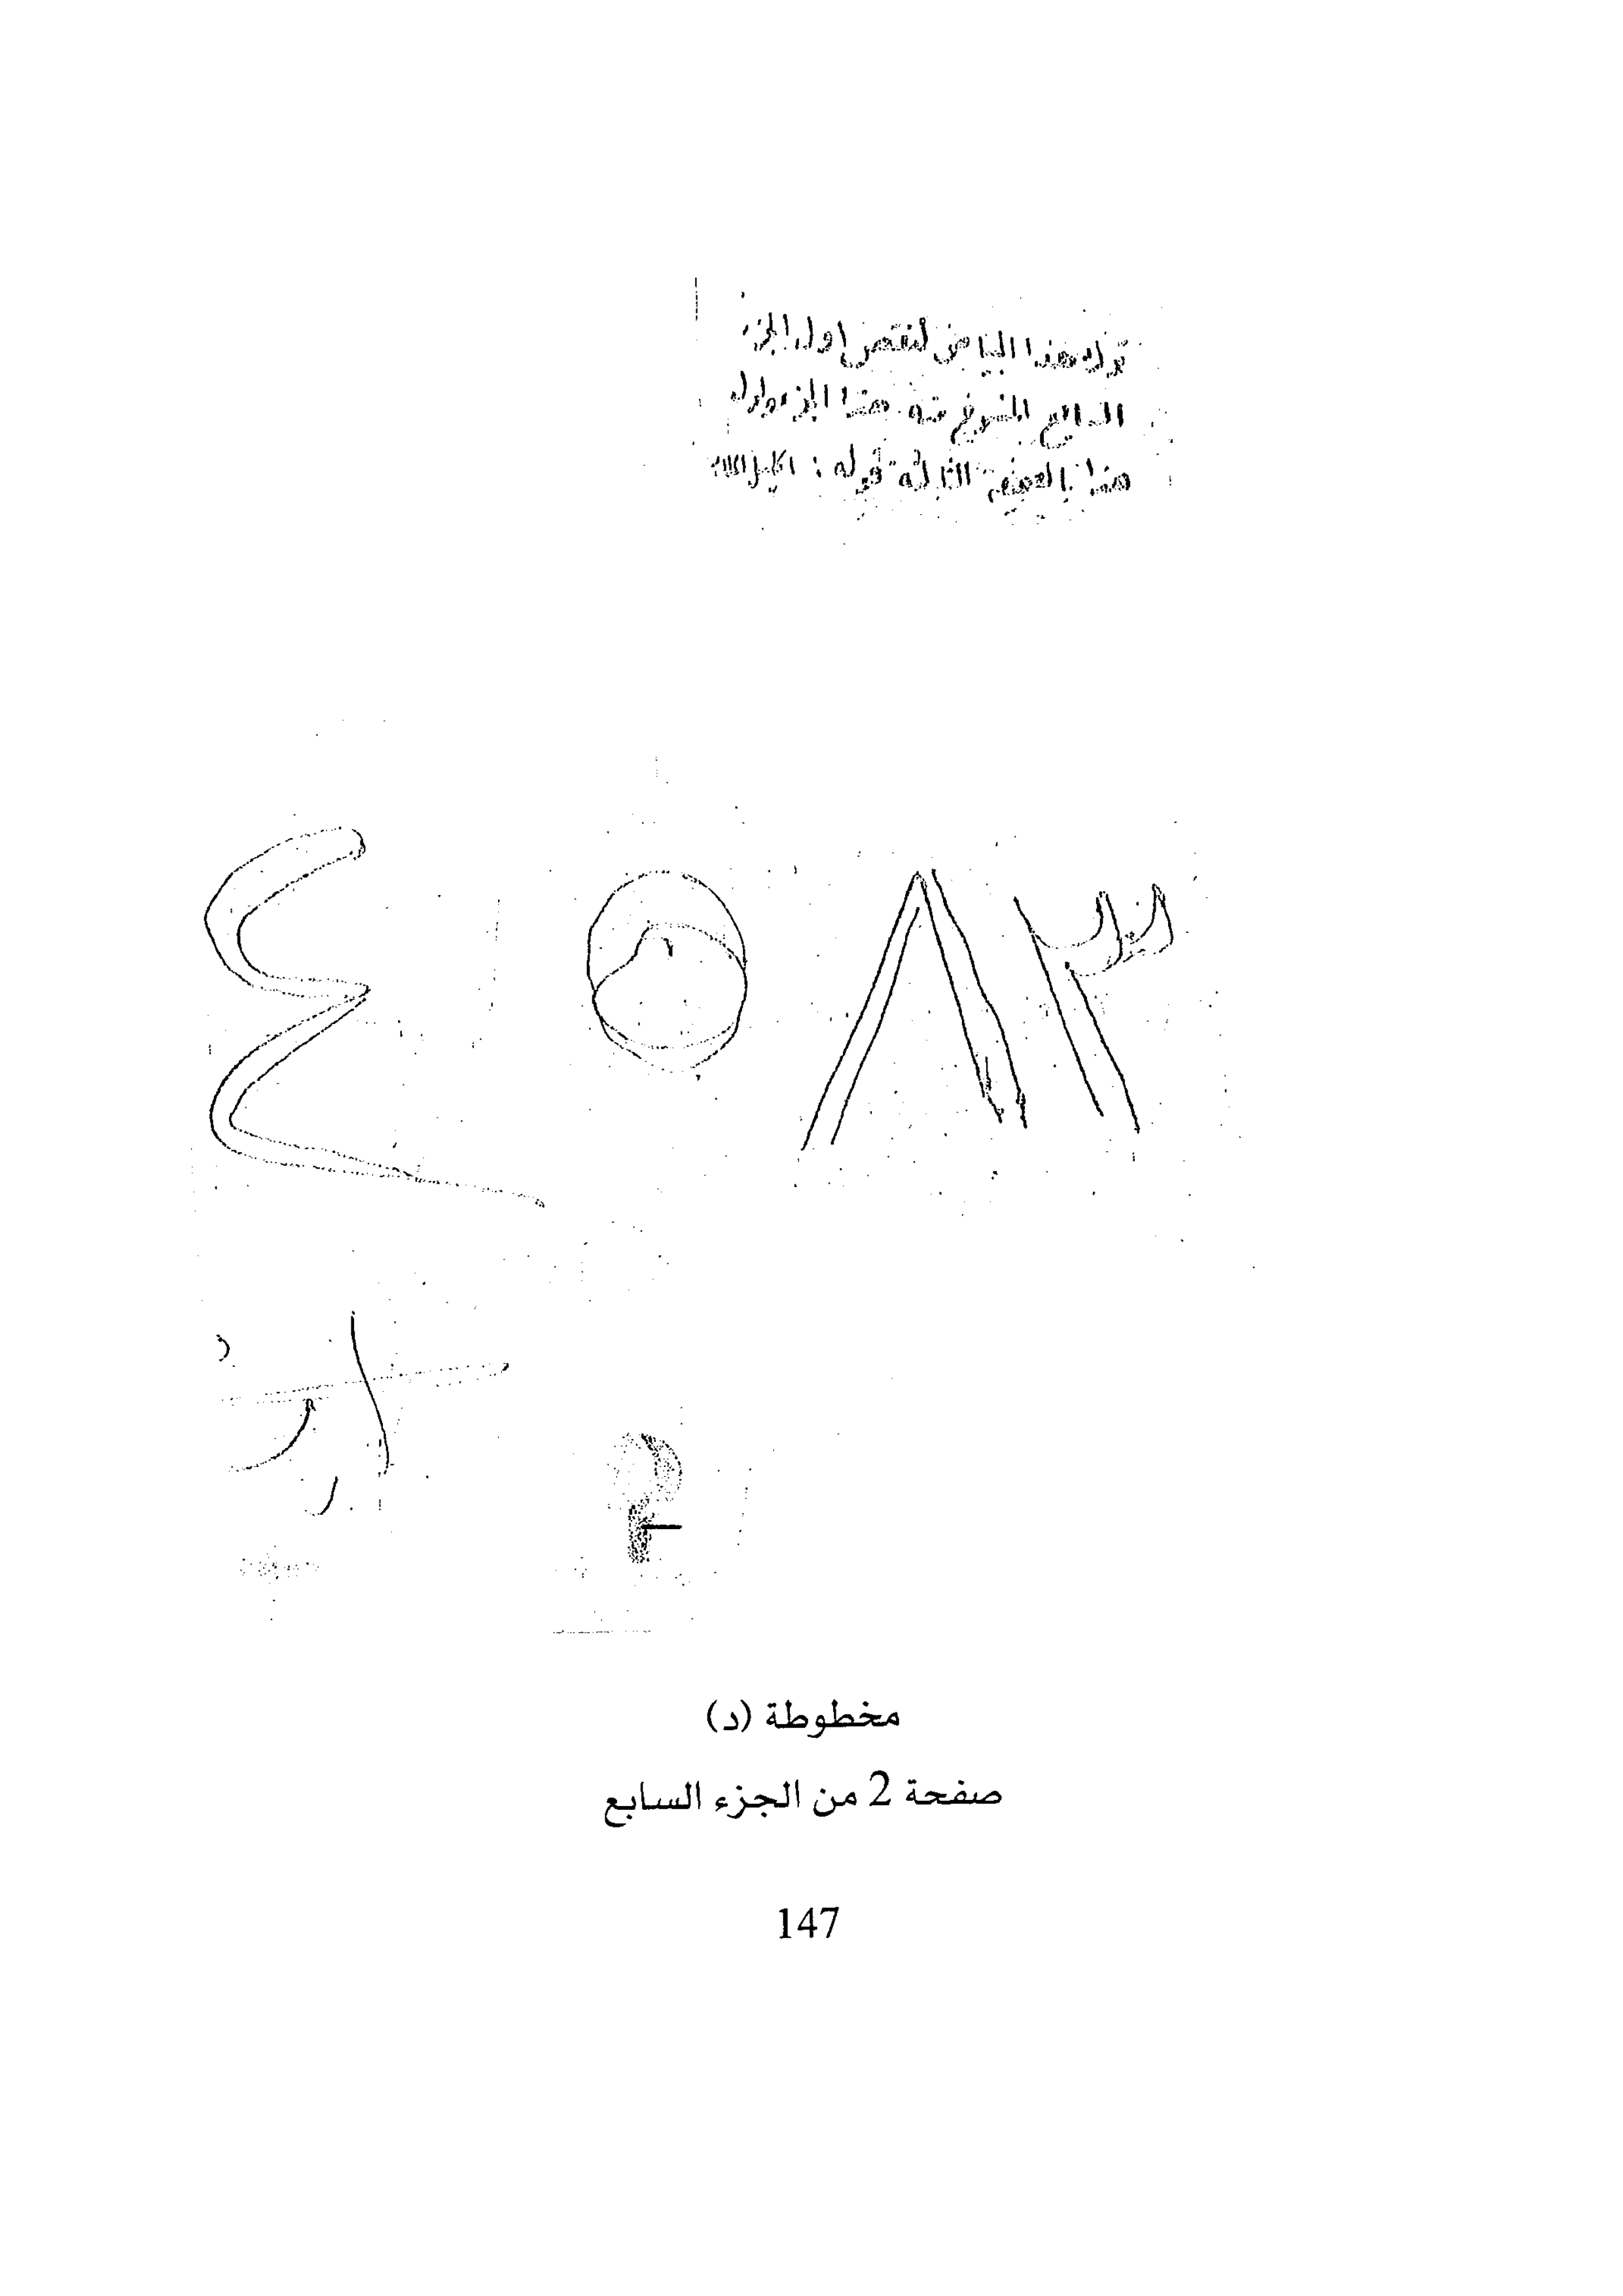 ترك هذا البياض لنقص اول الجزء
السابع المنسوخ منه هذا الجزء واول
هذا بالصفحة الثالثة قوله :
٣٨٥٤
مخطوطة (د)
صفحة 2 من الجزء السابع
147